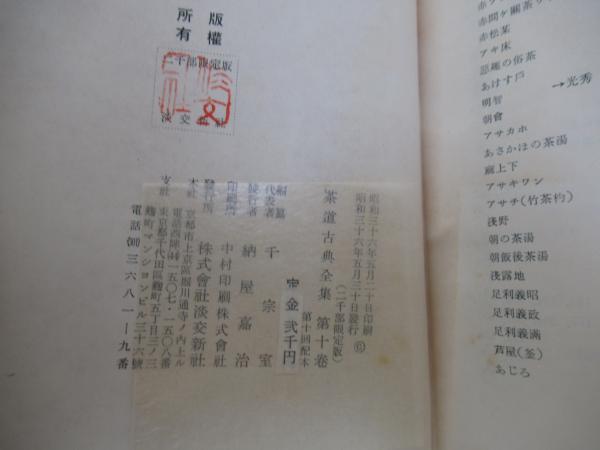 赤間ケ關茶
赤松某
アキ床
惡趣の俗茶
あけす戸
明智 →光秀
朝會
アサカホ
あさかほの茶湯
麻上下
アサキワン
アサチ(竹茶杓)
淺野
朝の茶湯
朝飯後茶湯
淺露地
足利義昭
足利義政
足利義滿
芦屋(釜)
あじろ
版權
所有
二千部限定版
淡交新社
昭和三十六年五月二十日印刷
昭和三十六年五月三十日發行 ⑥
(二千部限定版)
茶道古典全集 第十卷
第十回配本
定 金 貳千円
編纂代表者 千宗室
發行者 納屋嘉治
印刷所 中村印刷株式會社
發行所 株式會社淡交新社
本社 京都市上京區堀川通寺ノ内上ル
電話西陣(44)一五〇七・一五〇八番
支社 東京都千代田區麹町五丁目三ノ三
麹町マンシヨンビル三十六號
電話(301)三六八一—九番